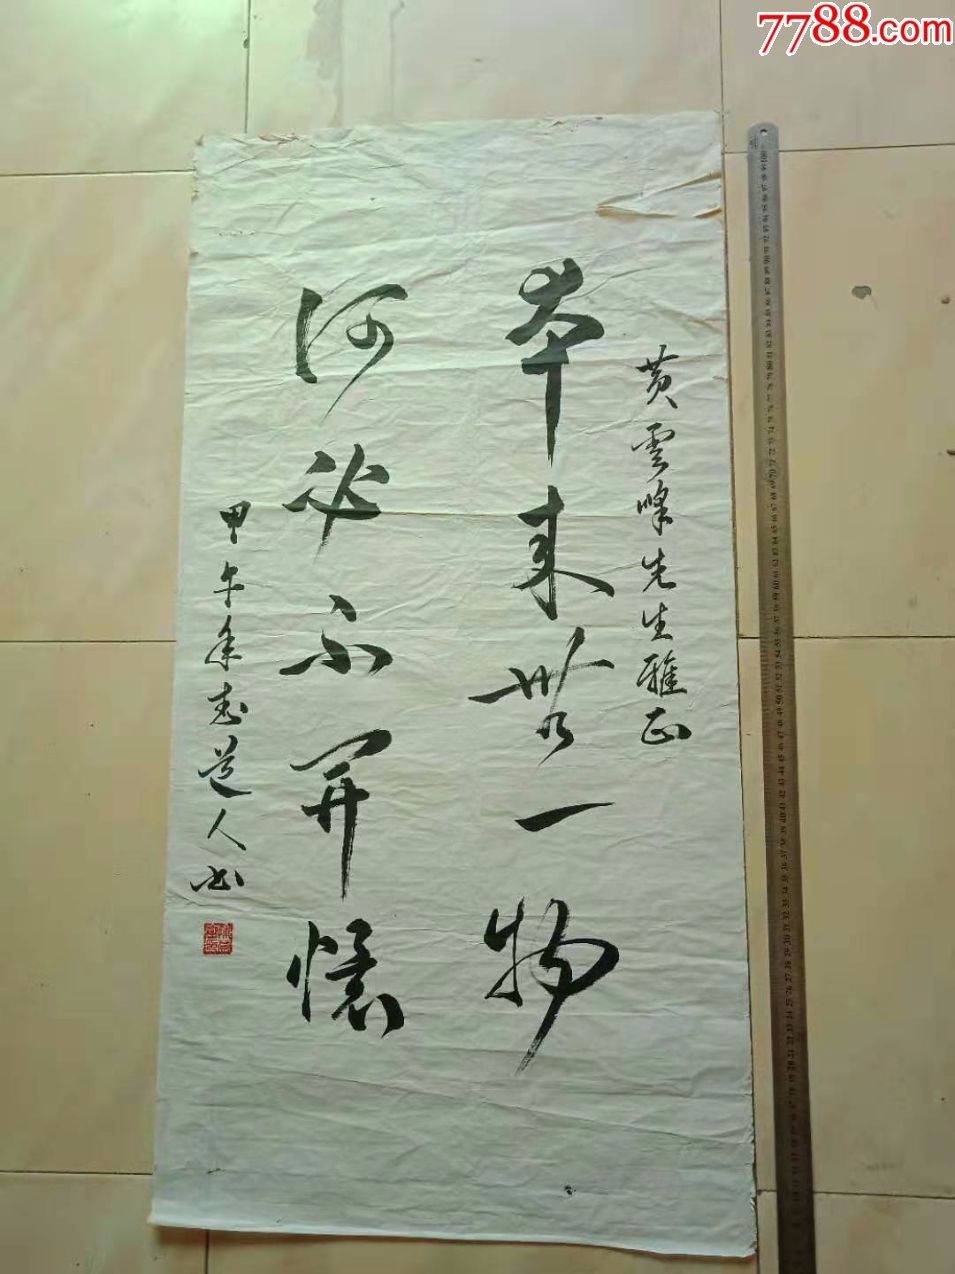 7788.com
黄雲峰先生雅正
本来無一物
何必不開懷
甲午年志道人书